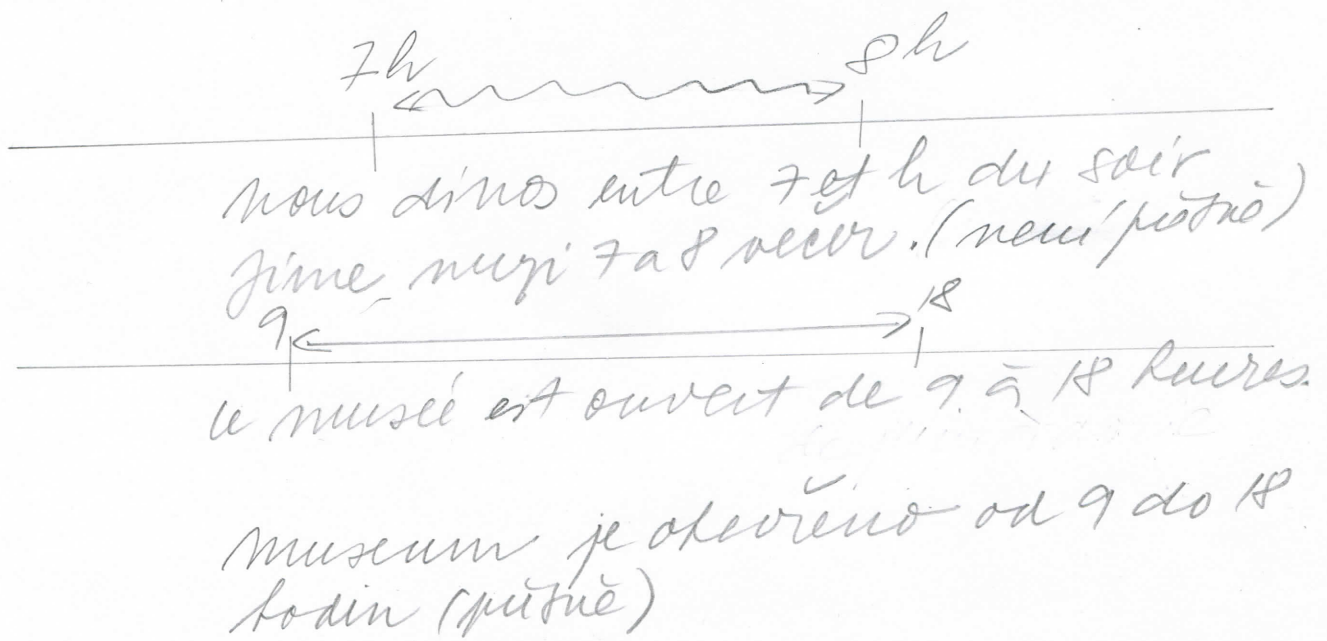 7h 8h
nous dinos entre 7 et h du soir
jíme mezi 7 a 8 večer. (není přesně)
9 18
le musée est ouvert de 9 à 18 heures.
museum je otevřeno od 9 do 18
hodin (přesně)